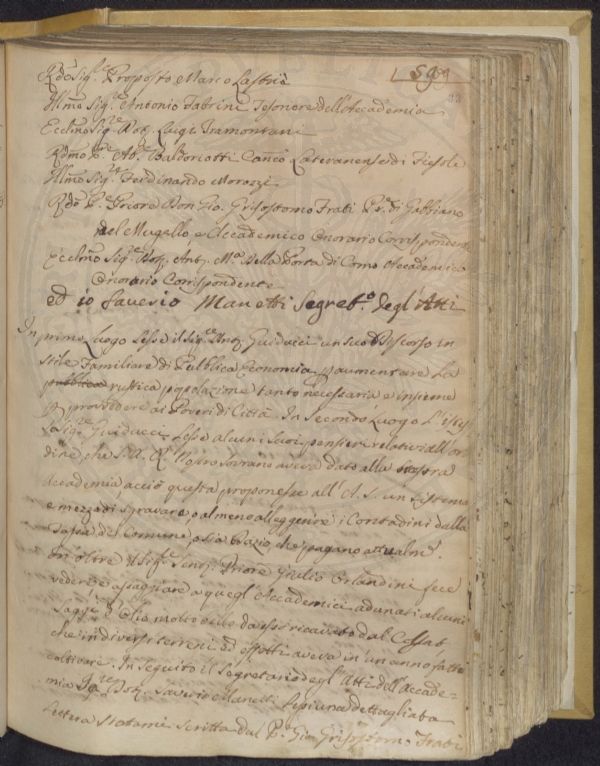 59
33
Rdo Sig.re Proposto Marco Lastri
Illmo Sig.re Antonio Fabrini Tesoriere dell'Accademia
Eccllmo Sig.re Dot. Luigi Tramontani
Rdmo P.re Ab.e Baldoriotti Canco Lateranense di Fiesole
Illmo Sig.re Ferdinando Morozzi
Rdo P.e Priore Don Gio. Grisostomo Frati Pr.e di Gabbiano
nel Mugello e Accademico Onorario Corrispondente
Eccllmo Sig.re Dot. Ant. Ma Della Porta di Como Accademico
Onorario Corrispondente
ed io Saverio Manetti Segret.o degl'Atti
In primo Luogo Lesse il Sig.re Ant. Guiducci un suo Discorso in
stile Familiare di Pubblica Economia p aumentare La
pubblica rustica popolazione tanto necessaria e insieme
p provvedere ai Poveri di Città. In Secondo Luogo L'istes
So Sig.re Guiducci Lesse alcuni suoi pensieri relativi all'or
dine che S. A. R. Nostro Sovrano aveva dato alla nostra
Accademia acciò questa proponesse all'A. S. un Sistema
e mezzo di sgravare, o almeno alleggerire i Contadini dalla
Tassa del Comune, o sia Dazio, che pagano attualm.e
In oltre Priore Giulio Orlandini fece
vedere e assaggiare a quegl'Accademici adunati alcuni
Saggi d'Olio molto utile da esso ricavato dal
che in diversi terreni aveva in un anno fatti
coltivare. In Seguito il Segretario degl'Atti dell'Accade-
mia Sig.re Dot. Saverio Manetti Lesse una dettagliata
Lettera statami scritta dal P.e Gio. Grisostomo Frati